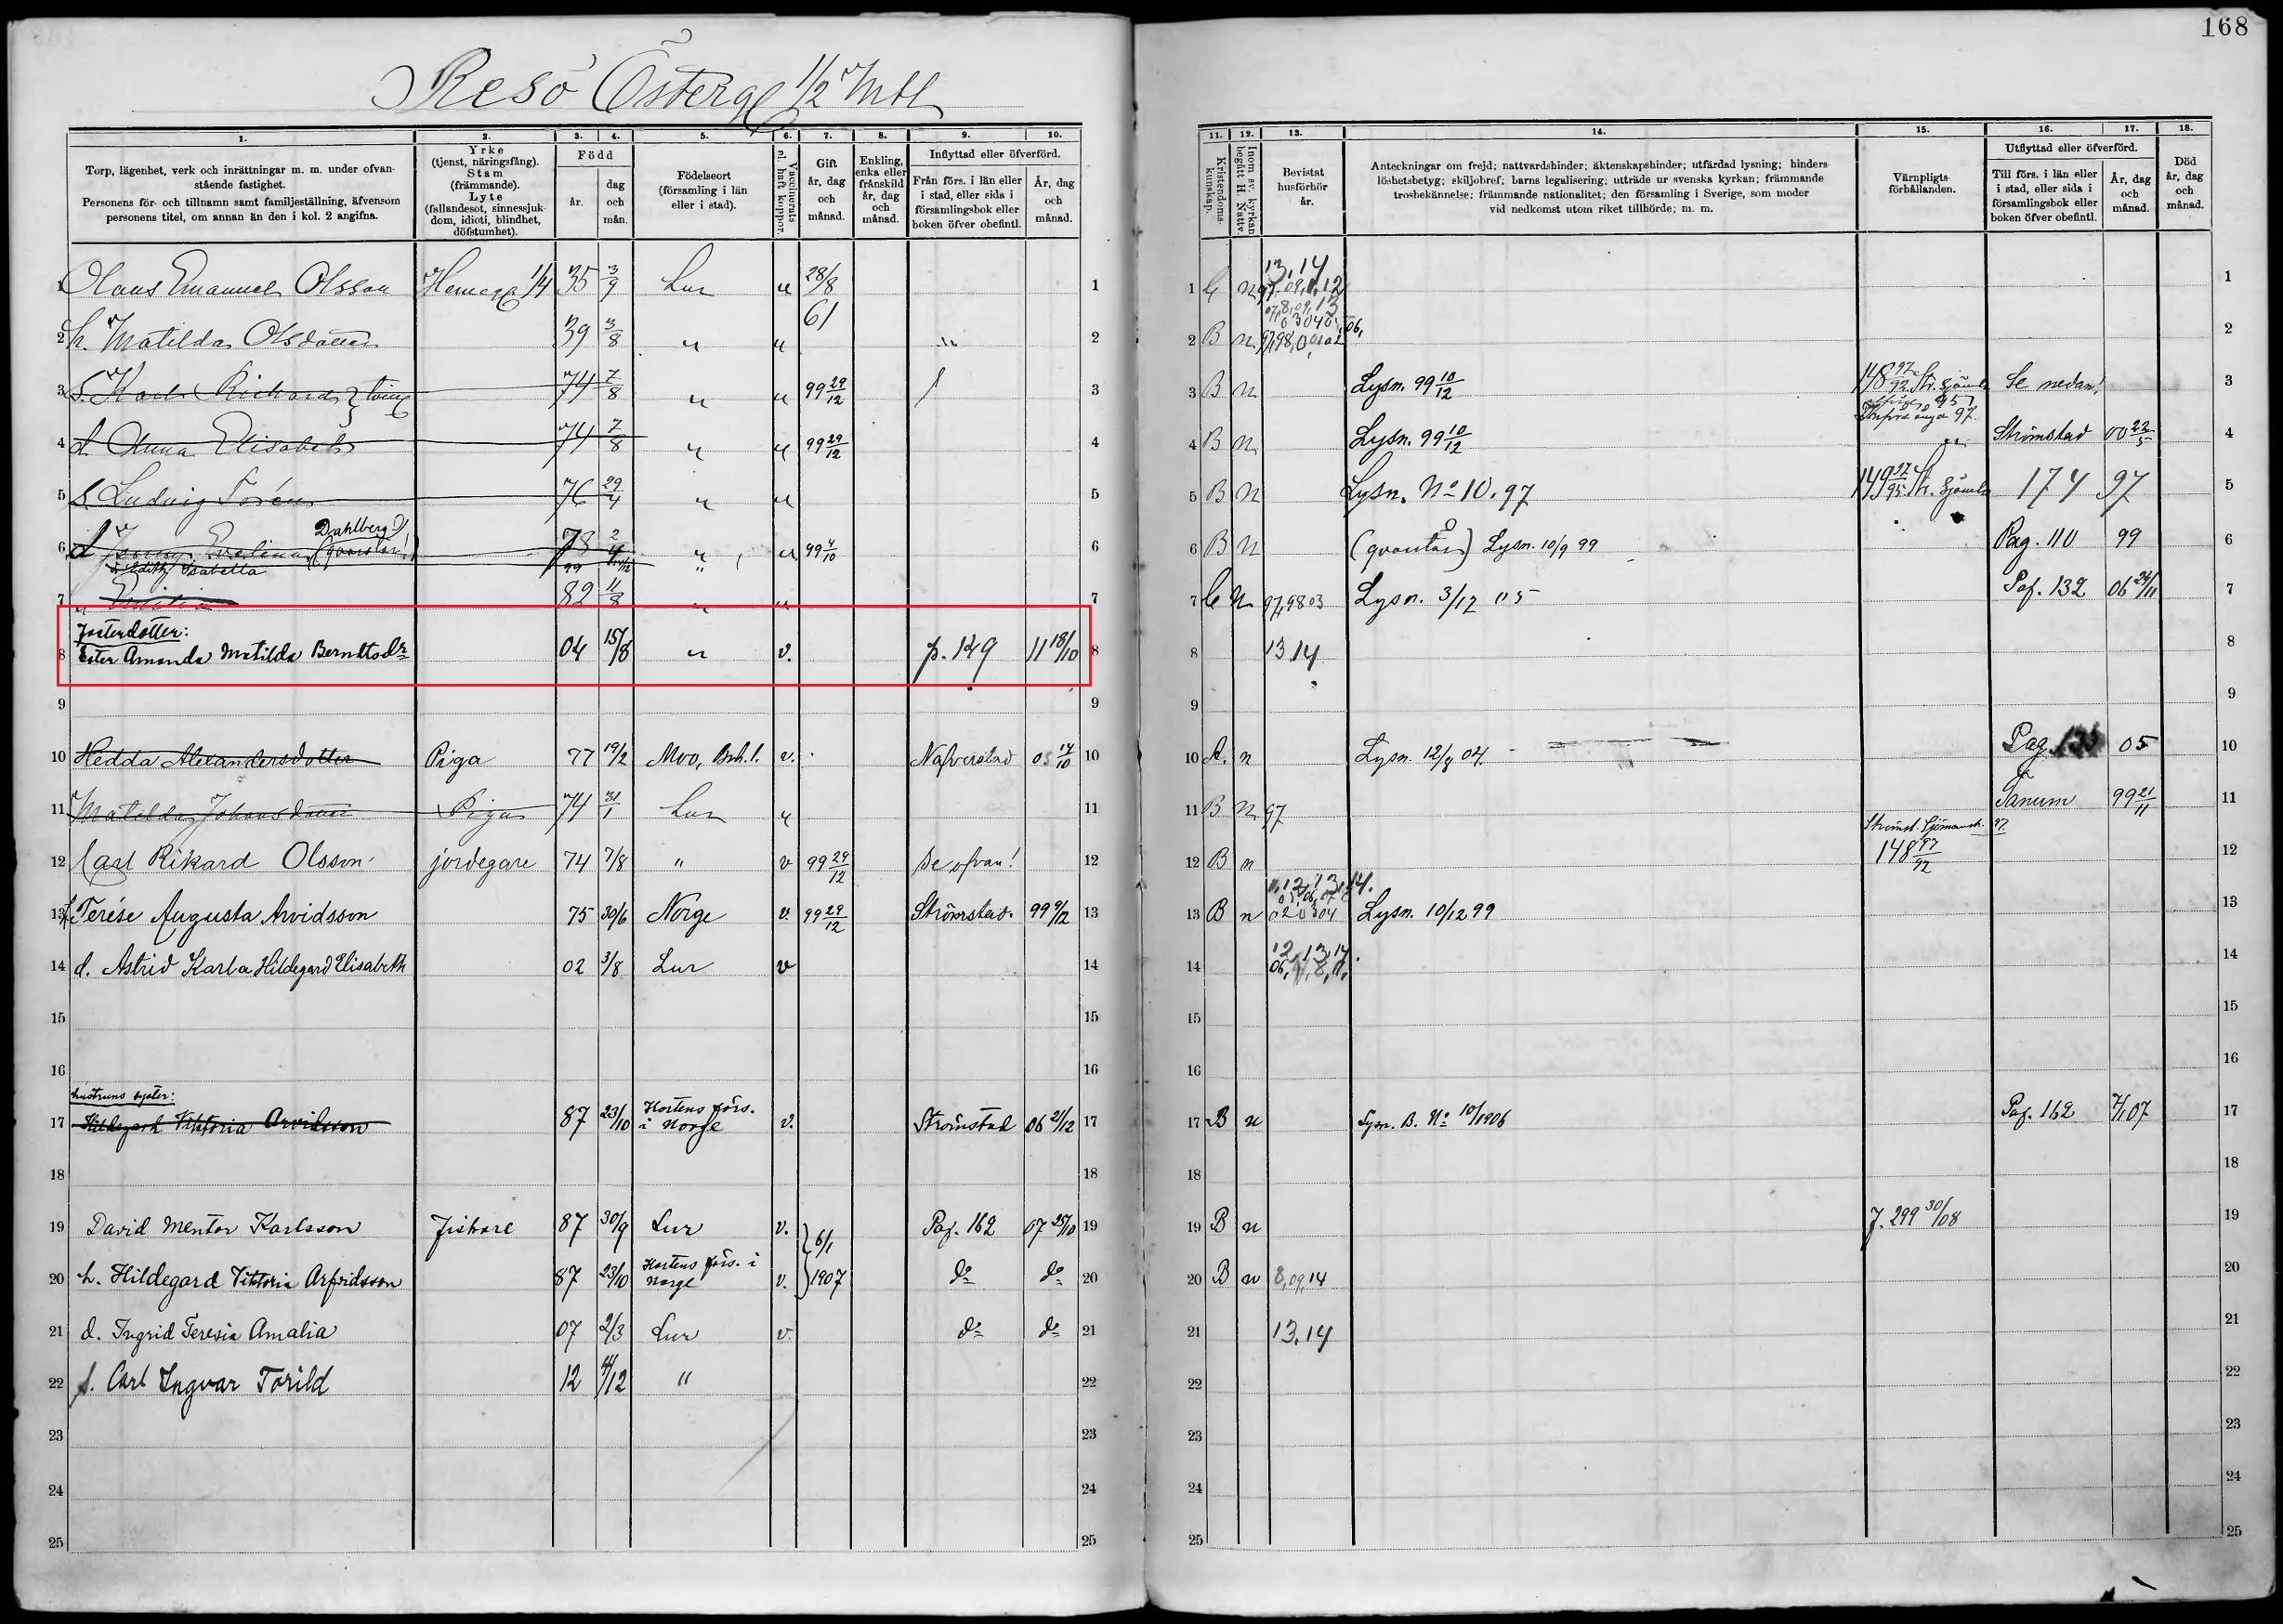 168
Resö Österg. 1/2 Mtl
1. 2. 3. 4. 5. 6. 7. 8. 9. 10.
Torp, lägenhet, verk och inrättningar m. m. under ofvan-
stående fastighet.
Personens för- och tillnamn samt familjeställning, äfvensom
personens titel, om annan än den i kol. 2 angifna.
Yrke
(tjenst, näringsfång).
Stam
(främmande).
Lyte
(fallandesot, sinnessjuk-
dom, idioti, blindhet,
döfstumhet).
Född
år.
dag
och
mån.
Födelseort
(församling i län
eller i stad).
Vaccinerats
el. haft koppor.
Gift
år, dag
och
månad.
Enkling,
enka eller
frånskild
år, dag
och
månad.
Inflyttad eller öfverförd.
Från förs. i län eller
i stad, eller sida i
församlingsbok eller
boken öfver obefintl.
År, dag
och
månad.
11. 12. 13. 14. 15. 16. 17. 18.
Kristendoms-
kunskap.
Inom sv. kyrkan
begått H. Nattv.
Bevistat
husförhör
år.
Anteckningar om frejd; nattvardshinder; äktenskapshinder; utfärdad lysning; hinders-
löshetsbetyg; skiljobref; barns legalisering; utträde ur svenska kyrkan; främmande
trosbekännelse; främmande nationalitet; den församling i Sverige, som moder
vid nedkomst utom riket tillhörde; m. m.
Värnpligts-
förhållanden.
Utflyttad eller öfverförd.
Till förs. i län eller
i stad, eller sida i
församlingsbok eller
boken öfver obefintl.
År, dag
och
månad.
Död
år, dag
och
månad.
1 Olaus Emanuel Olsson 1/4 35 3/9 Lur 28/8 61 1
2 h. Matilda Olsdotter 39 3/8 " 2
3 s. Karl Rickard 74 7/8 " 99 29/12 3
4 d. Anna Elisabet 74 7/8 " 99 29/12 4
5 s. Ludvig 76 29/4 " 5
6 d. Jenny Evelina Dahlberg (qvarstår!) 78 2/4 " 99 4/10 6
Edith Isabella 99
7 82 11/8 " 7
fosterdotter:
8 Ester Amanda Matilda Berntsdr 04 15/8 " v. p. 149 11 18/10 8
9 9
10 Hedda Alexandersdotter Piga 77 19/2 Mo, Boh. l. v. Nafverstad 14/10 10
11 Matilda Johansdotter Piga 74 31/1 Lur 11
12 Carl Rikard Olsson jordegare 74 7/8 " v 99 29/12 Se ofvan! 12
13 h. Terése Augusta Arvidsson 75 30/6 Norge v. 99 29/12 Strömstad. 99 9/12 13
14 d. Astrid Karla Hildegard Elisabeth 02 3/8 Lur v 14
15 15
16 16
hustruns syster:
17 Hildegard Viktoria Arvidsson 87 23/10 Hortens förs. i Norge v. Strömstad 06 21/12 17
18 18
19 David Mentor Karlsson Fiskare 87 30/9 Lur v. 6/1 Pag. 162 07 25/10 19
20 h. Hildegard Viktoria Arfvidsson 87 23/10 Hortens förs. i Norge v. 1907 do do 20
21 d. Ingrid Teresia Amalia 07 2/3 Lur v. do do 21
22 s. Carl Ingvar Torild 12 "  22
23 23
24 24
25 25
1 n 13, 14 1
2 B n 2
3 B n Lysn. 99 10/12 Se nedan! 3
4 B n Lysn. 99 10/12 Strömstad 00 22/5 4
5 B n Lysn. No 10. 97 174 97 5
6 B n (qvarstår) Lysn. 10/9 99 Pag. 110 99 6
7 n 97, 98 03 Lysn. 3/12 05 Pag. 132 06 24/11 7
8 13 14 8
9 9
10 A. n Lysn. 12/8 04. Pag. 05 10
11 B n 97 Tanum 99 21/11 11
Strömst. Sjömansh. 97.
12 B n 148 97/92 12
13 B n 02 03 04 Lysn. 10/12 99 13
14 12, 13, 14. 14
15 15
16 16
17 B n Lysn. B. No 10/1906 Pag. 162 07 17
18 18
19 B n J. 299 30/08 19
20 B n 8, 09, 14 20
21 13, 14 21
22 22
23 23
24 24
25 25